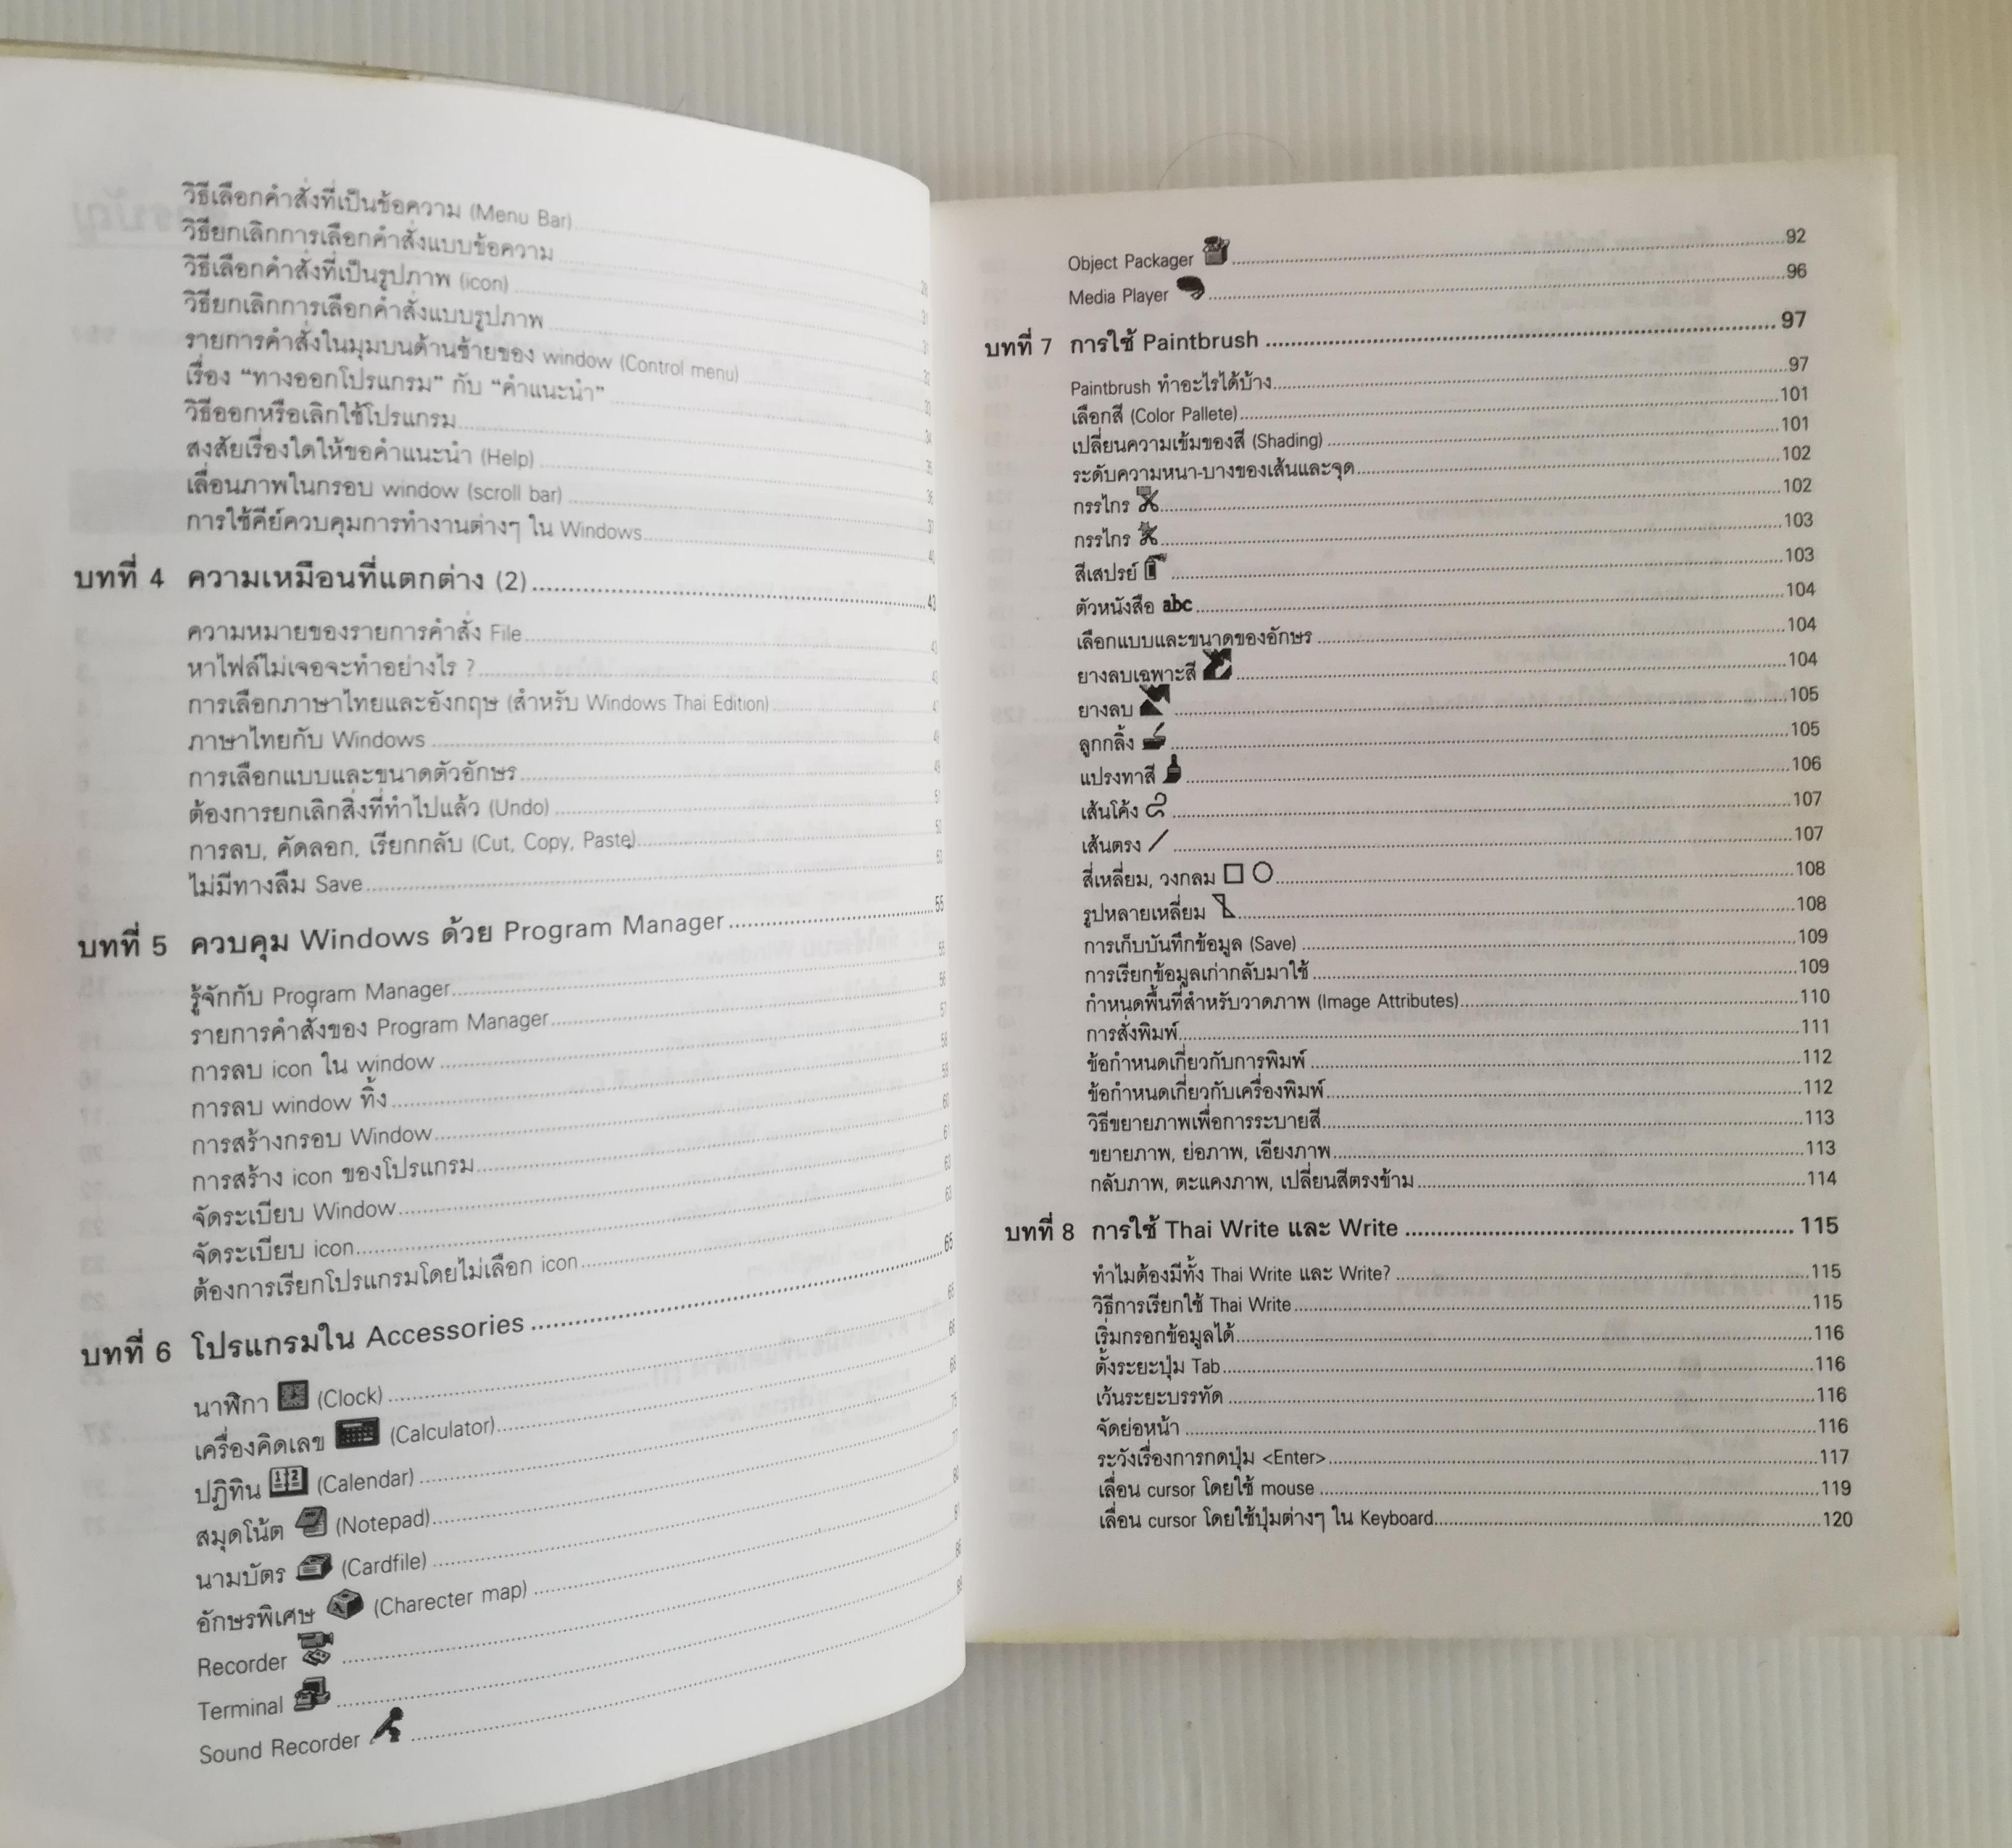 วิธีเลือกคำสั่งที่เป็นข้อความ (Menu Bar)
วิธียกเลิกการเลือกคำสั่งแบบข้อความ
วิธีเลือกคำสั่งที่เป็นรูปภาพ (icon)
วิธียกเลิกการเลือกคำสั่งแบบรูปภาพ
รายการคำสั่งในมุมบนด้านซ้ายของ window (Control menu)
เรื่อง “ทางออกโปรแกรม” กับ “คำแนะนำ”
วิธีออกหรือเลิกใช้โปรแกรม
สงสัยเรื่องใดให้ขอคำแนะนำ (Help)
เลื่อนภาพในกรอบ window (scroll bar)
การใช้คีย์ควบคุมการทำงานต่างๆ ใน Windows
บทที่ 4 ความเหมือนที่แตกต่าง (2) 43
ความหมายของรายการคำสั่ง File
หาไฟล์ไม่เจอจะทำอย่างไร ?
การเลือกภาษาไทยและอังกฤษ (สำหรับ Windows Thai Edition)
ภาษาไทยกับ Windows
การเลือกแบบและขนาดตัวอักษร
ต้องการยกเลิกสิ่งที่ทำไปแล้ว (Undo)
การลบ, คัดลอก, เรียกกลับ (Cut, Copy, Paste)
ไม่มีทางลืม Save
บทที่ 5 ควบคุม Windows ด้วย Program Manager 55
รู้จักกับ Program Manager 55
รายการคำสั่งของ Program Manager 56
การลบ icon ใน window 57
การลบ window ทิ้ง 58
การสร้างกรอบ Window 59
การสร้าง icon ของโปรแกรม 60
จัดระเบียบ Window 61
จัดระเบียบ icon 63
ต้องการเรียกโปรแกรมโดยไม่เลือก icon 63
บทที่ 6 โปรแกรมใน Accessories 65
นาฬิกา (Clock) 65
เครื่องคิดเลข (Calculator) 66
ปฏิทิน (Calendar) 68
สมุดโน้ต (Notepad) 75
นามบัตร (Cardfile) 77
อักษรพิเศษ (Charecter map) 80
Recorder
Terminal
Sound Recorder
Object Packager 92
Media Player 96
บทที่ 7 การใช้ Paintbrush 97
Paintbrush ทำอะไรได้บ้าง 97
เลือกสี (Color Pallete) 101
เปลี่ยนความเข้มของสี (Shading) 101
ระดับความหนา-บางของเส้นและจุด 102
กรรไกร 102
กรรไกร 103
สีเสปรย์ 103
ตัวหนังสือ abc 104
เลือกแบบและขนาดของอักษร 104
ยางลบเฉพาะสี 104
ยางลบ 105
ลูกกลิ้ง 105
แปรงทาสี 106
เส้นโค้ง 107
เส้นตรง 107
สี่เหลี่ยม, วงกลม 108
รูปหลายเหลี่ยม 108
การเก็บบันทึกข้อมูล (Save) 109
การเรียกข้อมูลเก่ากลับมาใช้ 109
กำหนดพื้นที่สำหรับวาดภาพ (Image Attributes) 110
การสั่งพิมพ์ 111
ข้อกำหนดเกี่ยวกับการพิมพ์ 112
ข้อกำหนดเกี่ยวกับเครื่องพิมพ์ 112
วิธีขยายภาพเพื่อการระบายสี 113
ขยายภาพ, ย่อภาพ, เอียงภาพ 113
กลับภาพ, ตะแคงภาพ, เปลี่ยนสีตรงข้าม 114
บทที่ 8 การใช้ Thai Write และ Write 115
ทำไมต้องมีทั้ง Thai Write และ Write? 115
วิธีการเรียกใช้ Thai Write 115
เริ่มกรอกข้อมูลได้ 116
ตั้งระยะปุ่ม Tab 116
เว้นระยะบรรทัด 116
จัดย่อหน้า 116
ระวังเรื่องการกดปุ่ม <Enter> 117
เลื่อน cursor โดยใช้ mouse 119
เลื่อน cursor โดยใช้ปุ่มต่างๆ ใน Keyboard 120